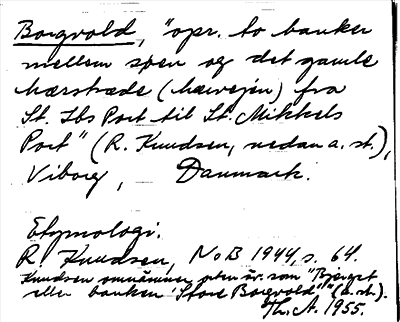 Borgvold, "opr. to banker
mellem søen og det gamle
hærstræde (hærvejen) fra
St. Ibs Port til St. Mikkels
Port" (R. Knudsen, nedan a. st.),
Viborg, Danmark.
Etymologi.
R. Knudsen, NoB 1944, s. 64.
Knudsen omnämner orten är. som "Bjerget
eller banken 'Store Borgvold'" (a. st.).
Th. A. 1955.